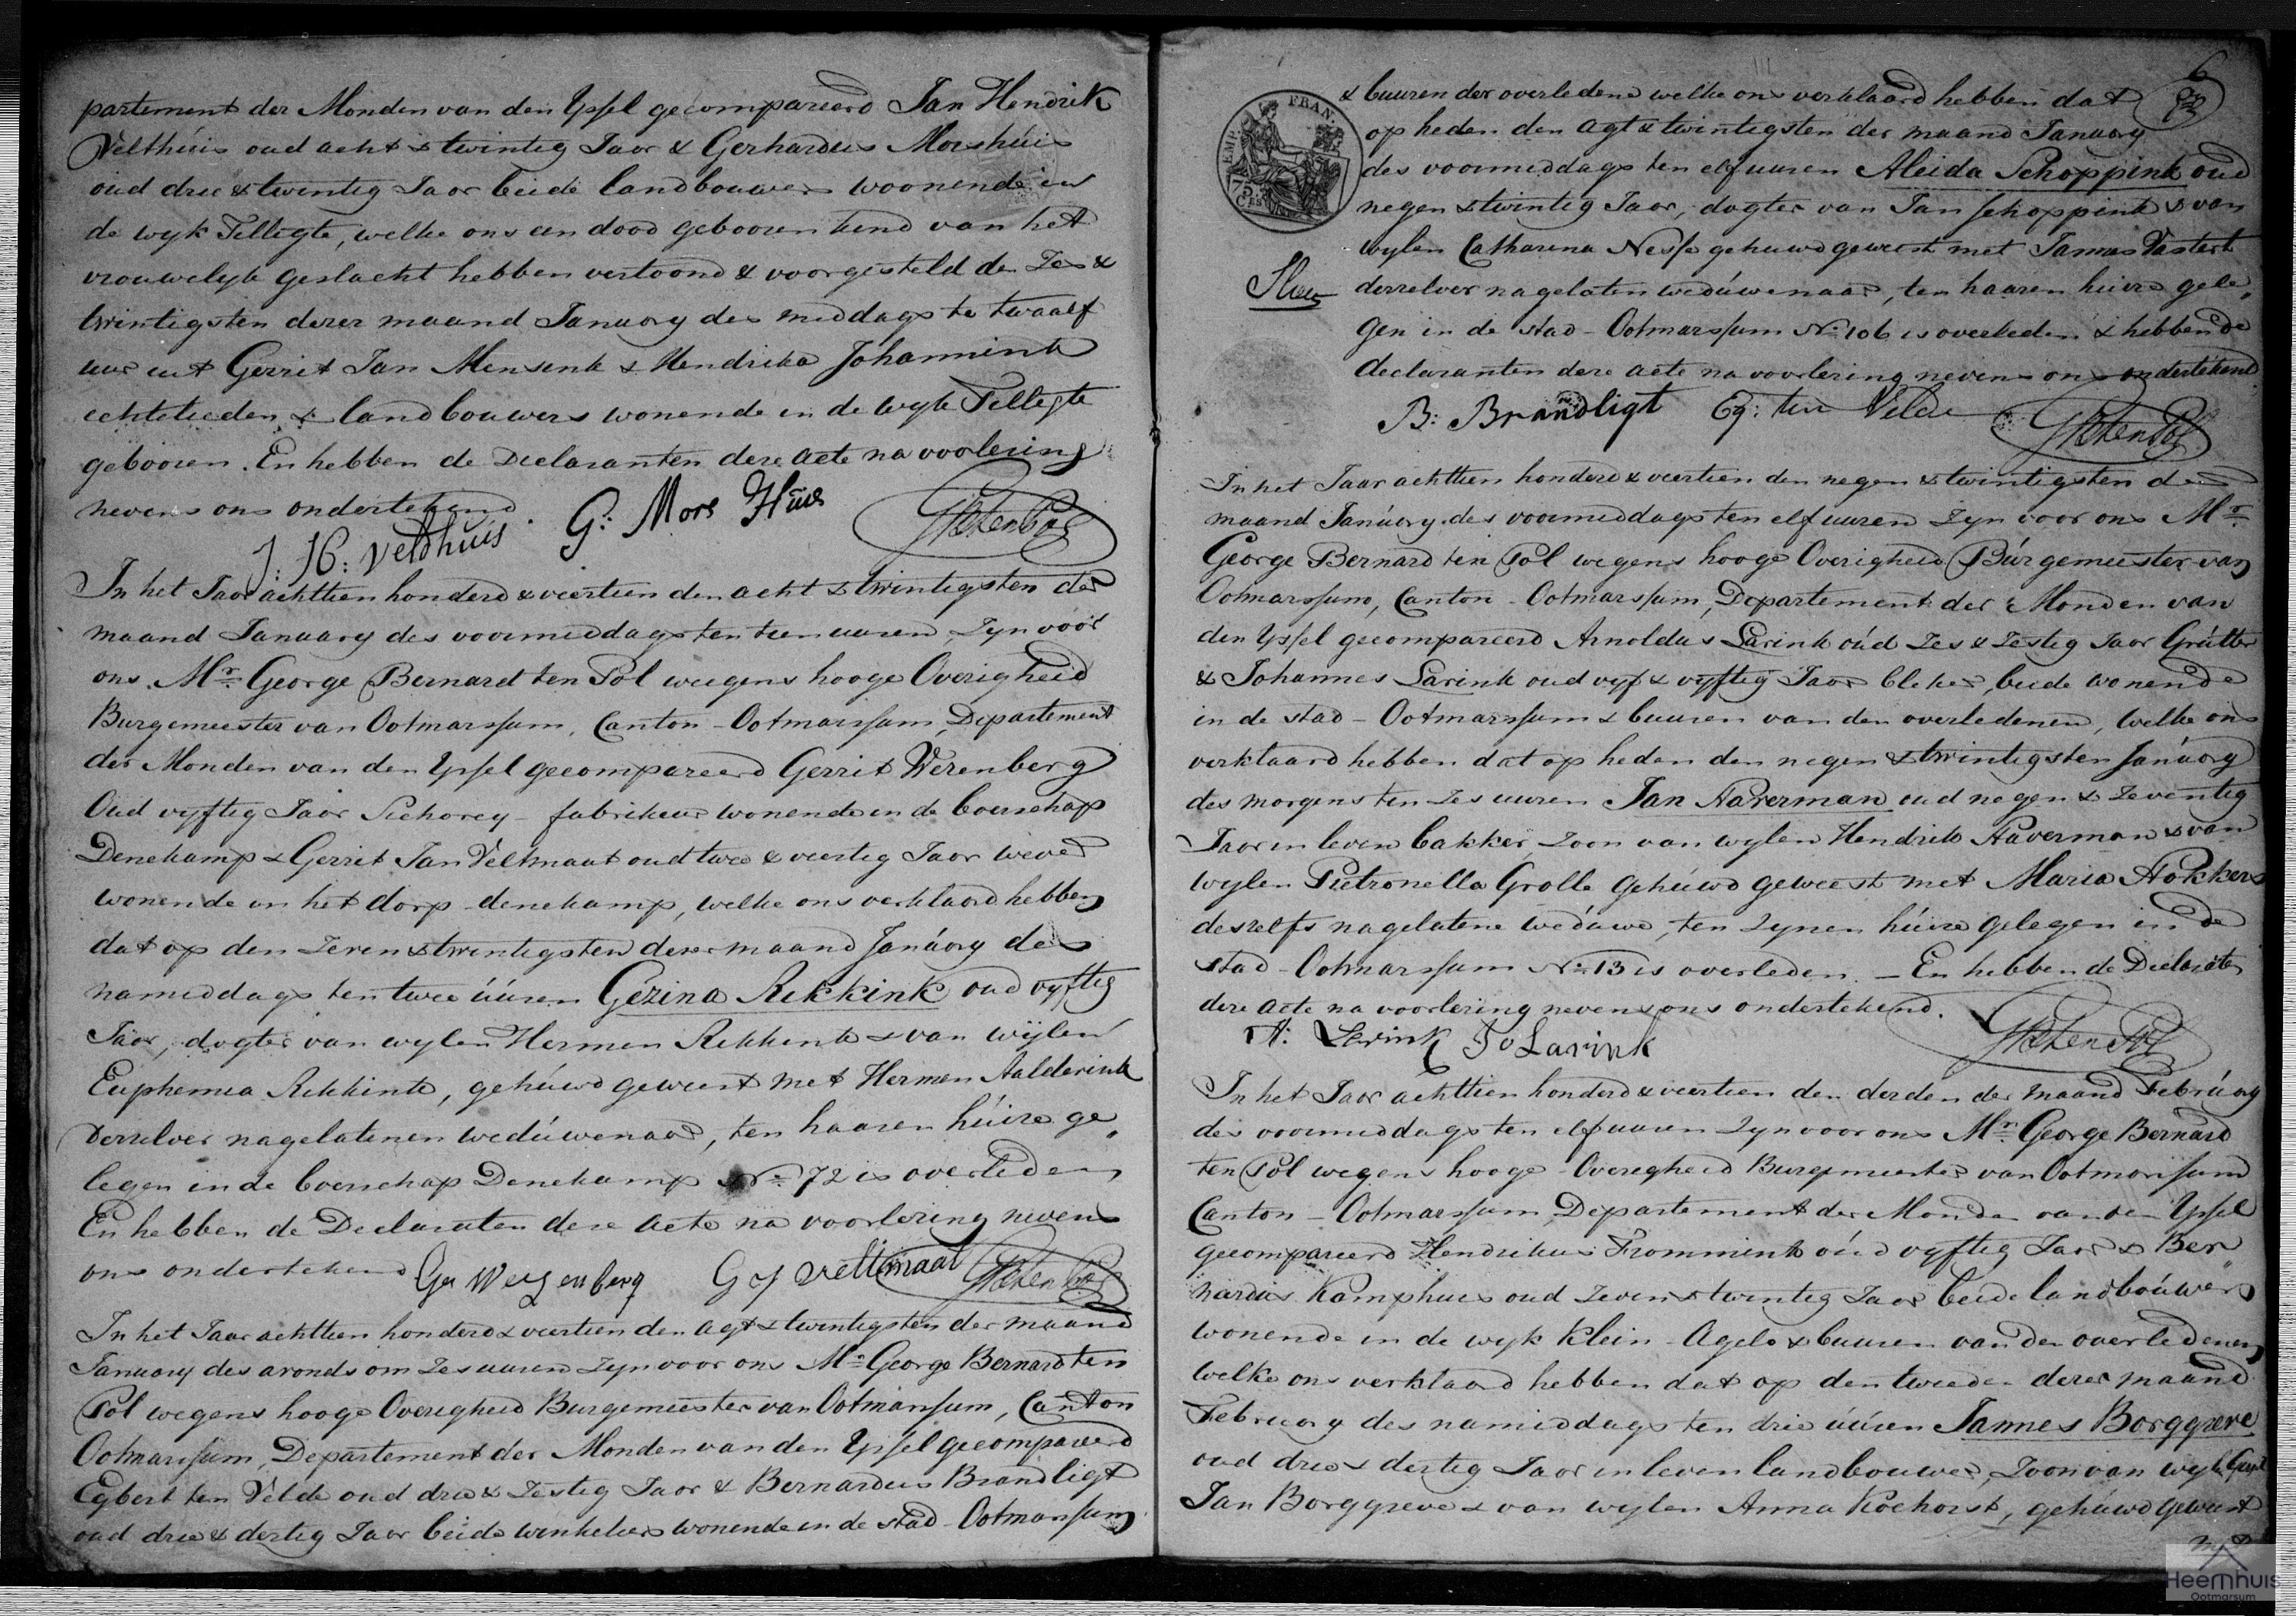 partement der Monden van den Yssel gecompareerd Jan Hendrik
Velthuis oud acht & twintig Jaar & Gerhardus Morshuis
oud drie & twintig Jaar beide landbouwers woonende in
de wyk Tilligte, welke ons een dood gebooren kind van het
vrouwelyk geslacht hebben vertoond & voorgesteld den Zes &
twintigsten dezer maand January des middags te twaalf
uur uit Gerrit Jan Mensink & Hendrika Johannink
echtelieden & landbouwers wonende in de wyk Tilligte
gebooren. En hebben de Declaranten deze acte na voorlezing
nevens ons ondertekend.
J: H: Veldhuis G: Mors Huis GB ten Pol
In het Jaar achttien honderd & veertien den acht & twintigsten der
maand January des voormiddags ten tien uuren Zyn voor
ons Mr. George Bernard ten Pol weegens hooge Overigheid
Burgemeester van Ootmarssum, Canton - Ootmarssum, Departement
der Monden van den Yssel gecompareerd Gerrit Wezenberg
Oud vyftig Jaar Sichorey - fabrikeur wonende in de boerschap
Denekamp & Gerrit Jan Veltmaat oud twee & veertig Jaar wever
wonende in het dorp denekamp, welke ons verklaard hebben
dat op den Zeven & twintigsten dezer maand January des
namiddags ten twee uuren Gezina Rekkink oud vyftig
Jaar, dogter van wylen Hermen Rekkink & van wijlen
Euphemia Rekkink, gehuwd geweest met Hermen Aalderink
derzelver nagelatenen weduwenaar, ten haaren huize ge„
legen in de boerschap Denekamp No 72 is overleden
En hebben de Declaraten deze acte na voorlezing nevens
ons ondertekend Ger Wezenberg G J Veltmaat GB ten Pol
In het Jaar achttien honderd & veertien den agt & twintigsten der maand
January des avonds om Zes uuren Zyn voor ons Mr. George Bernard ten
Pol wegens hooge Overigheid Burgemeester van Ootmarssum, Canton
Ootmarssum, Departement der Monden van den Yssel gecompareerd
Egbert ten Velde oud drie & Zestig Jaar & Bernardus Brandligt
oud drie & dertig Jaar beide winkeliers wonende in de stad - Ootmarssum
6
& buuren der overledene welke ons verklaard hebben dat
op heden den agt & twintigsten der maand January
des voormiddags ten elf uuren Aleida Schoppink oud
negen & twintig Jaar, dogter van Jan Schoppink & van
wylen Catharina Nesse gehuwd geweest met Jannes Vastert
derzelver nagelaten weduwenaar, ten haaren huize gele„
gen in de stad - Ootmarssum No 106 is overleden & hebben de
declaranten deze acte na voorlezing nevens ons ondertekend
EMP. FRAN.
75 CES
B: Brandligt Eg: ten Velde GB ten Pol
In het Jaar achttien honderd & veertien den negen & twintigsten der
maand January des voormiddags ten elf uuren Zyn voor ons Mr.
George Bernard ten Pol wegens hooge Overigheid Burgemeester van
Ootmarssum, Canton - Ootmarssum, Departement der Monden van
den Yssel gecompareerd Arnoldus Larink oud Zes & Zestig Jaar Grutter
& Johannes Larink oud vyf & vyftig Jaar bleker, beide wonende
in de stad - Ootmarssum & buuren van den overledenen, welke ons
verklaard hebben dat op heden den negen & twintigsten January
des morgens ten Zes uuren Jan Haverman oud negen & Zeventig
Jaar in leven bakker, Zoon van wylen Hendrik Haverman & van
wylen Pietronella Grolle gehuwd geweest met Maria Hokkers
deszelfs nagelatene weduwe, ten Zynen huize gelegen in de
stad - Ootmarssum No 13 is overleden. — En hebben de Declaraten
deze acte na voorlezing nevens ons ondertekend.
A: Larink Jo Larink GB ten Pol
In het Jaar achttien honderd & veertien den derden der maand February
des voormiddags ten elf uuren Zyn voor ons Mr. George Bernard
ten Pol wegens hooge - Overigheid Burgemeester van Ootmarssum
Canton - Ootmarssum Departement der Monden van den Yssel
gecompareerd Hendrikus Frommink oud vyftig Jaar & Ber„
nardus Kamphuis oud Zeven & twintig Jaar beide landbouwers
wonende in de wyk Klein - Agelo & buuren van den overledenen
welke ons verklaard hebben dat op den tweeden dezer maand
February des namiddags ten drie uuren Jannes Borggreve
oud drie & dertig Jaar in leven landbouwer, Zoon van wyle Gerrit
Jan Borggreve & van wylen Anna Koehorst, gehuwd geweest
Heemhuis
Ootmarsum